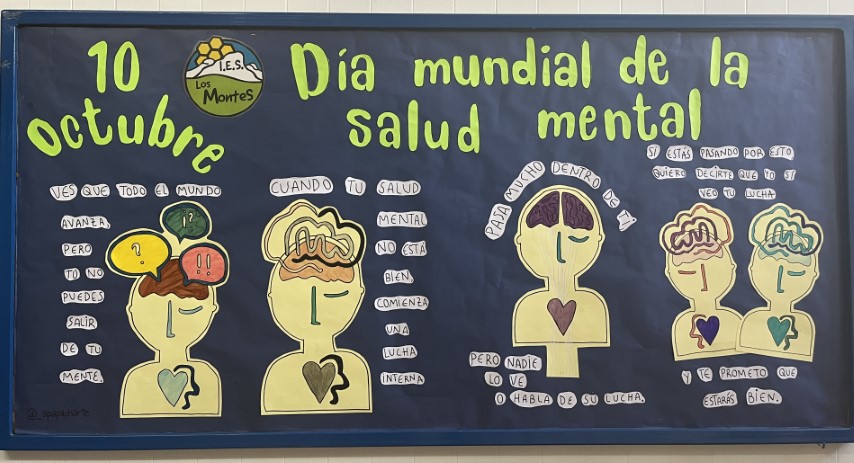 10 octubre
I.E.S.
Los Montes
Día mundial de la
salud mental
VES QUE TODO EL MUNDO
AVANZA,
PERO
TÚ NO
PUEDES
SALIR
DE TU
MENTE.
?
¡?
!!
CUANDO TU SALUD
MENTAL
NO ESTÁ
BIEN,
COMIENZA
UNA
LUCHA
INTERNA
PASA MUCHO DENTRO DE TI,
PERO NADIE
LO VE
O HABLA DE SU LUCHA.
SI ESTÁS PASANDO POR ESTO,
QUIERO DECIRTE QUE YO SÍ
VEO TU LUCHA
Y TE PROMETO QUE
ESTARÁS BIEN.